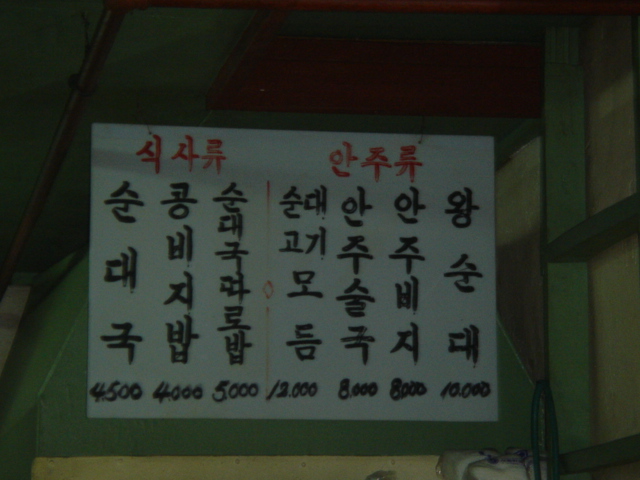 식사류
순대국 4.500
콩비지밥 4.000
순대국따로밥 5.000
안주류
순대고기모듬 12.000
안주술국 8.000
안주비지 8.000
왕순대 10.000